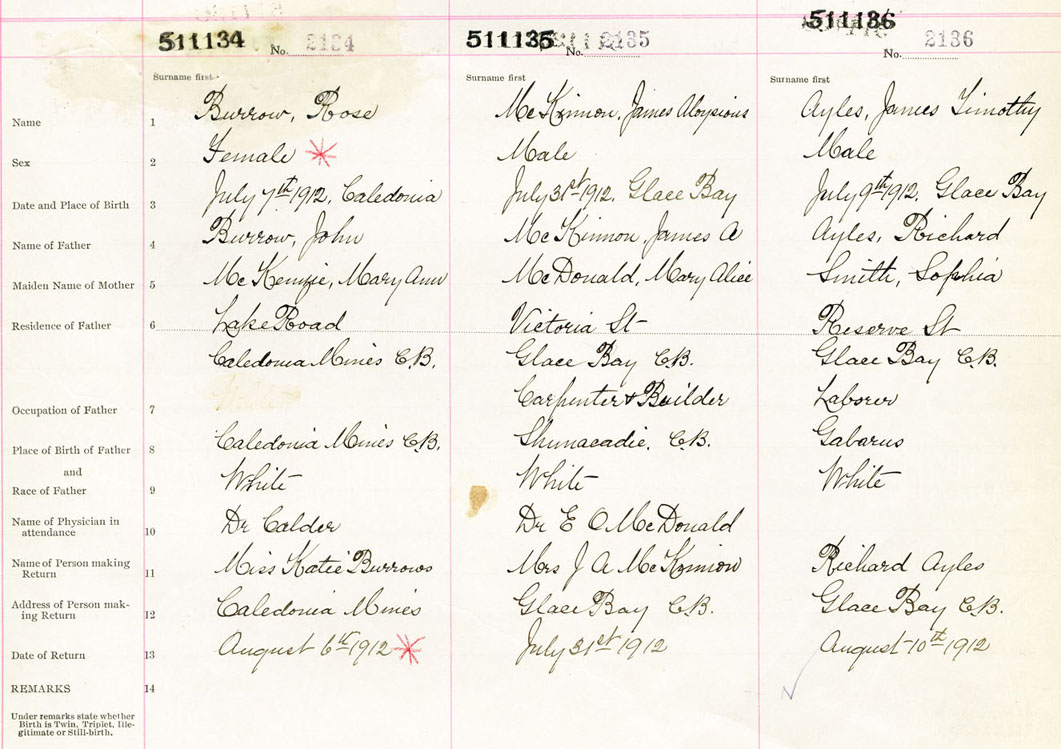 511134 No. 2134 511135 No. 2135 511136 No. 2136
Surname first Surname first Surname first
Name 1 Burrow, Rose McKinnon, James Aloysious Ayles, James Timothy
Sex 2 Female Male Male
Date and Place of Birth 3 July 7th 1912, Caledonia July 31st 1912, Glace Bay July 9th 1912, Glace Bay
Name of Father 4 Burrow, John McKinnon, James A Ayles, Richard
Maiden Name of Mother 5 McKenzie, Mary Ann McDonald, Mary Alice Smith, Sophia
Residence of Father 6 Lake Road Victoria St Reserve St
Caledonia Mines C.B. Glace Bay C.B. Glace Bay C.B.
Occupation of Father 7 Carpenter & Builder Laborer
Place of Birth of Father 8 Caledonia Mines C.B. Shunacadie, C.B. Gabarus
and
Race of Father 9 White White White
Name of Physician in
attendance 10 Dr Calder Dr E O McDonald
Name of Person making
Return 11 Miss Katie Burrows Mrs J A McKinnon Richard Ayles
Address of Person mak-
ing Return 12 Caledonia Mines Glace Bay C.B. Glace Bay C.B.
Date of Return 13 August 6th 1912 July 31st 1912 August 10th 1912
REMARKS 14
Under remarks state whether
Birth is Twin, Triplet, Ille-
gitimate or Still-birth.